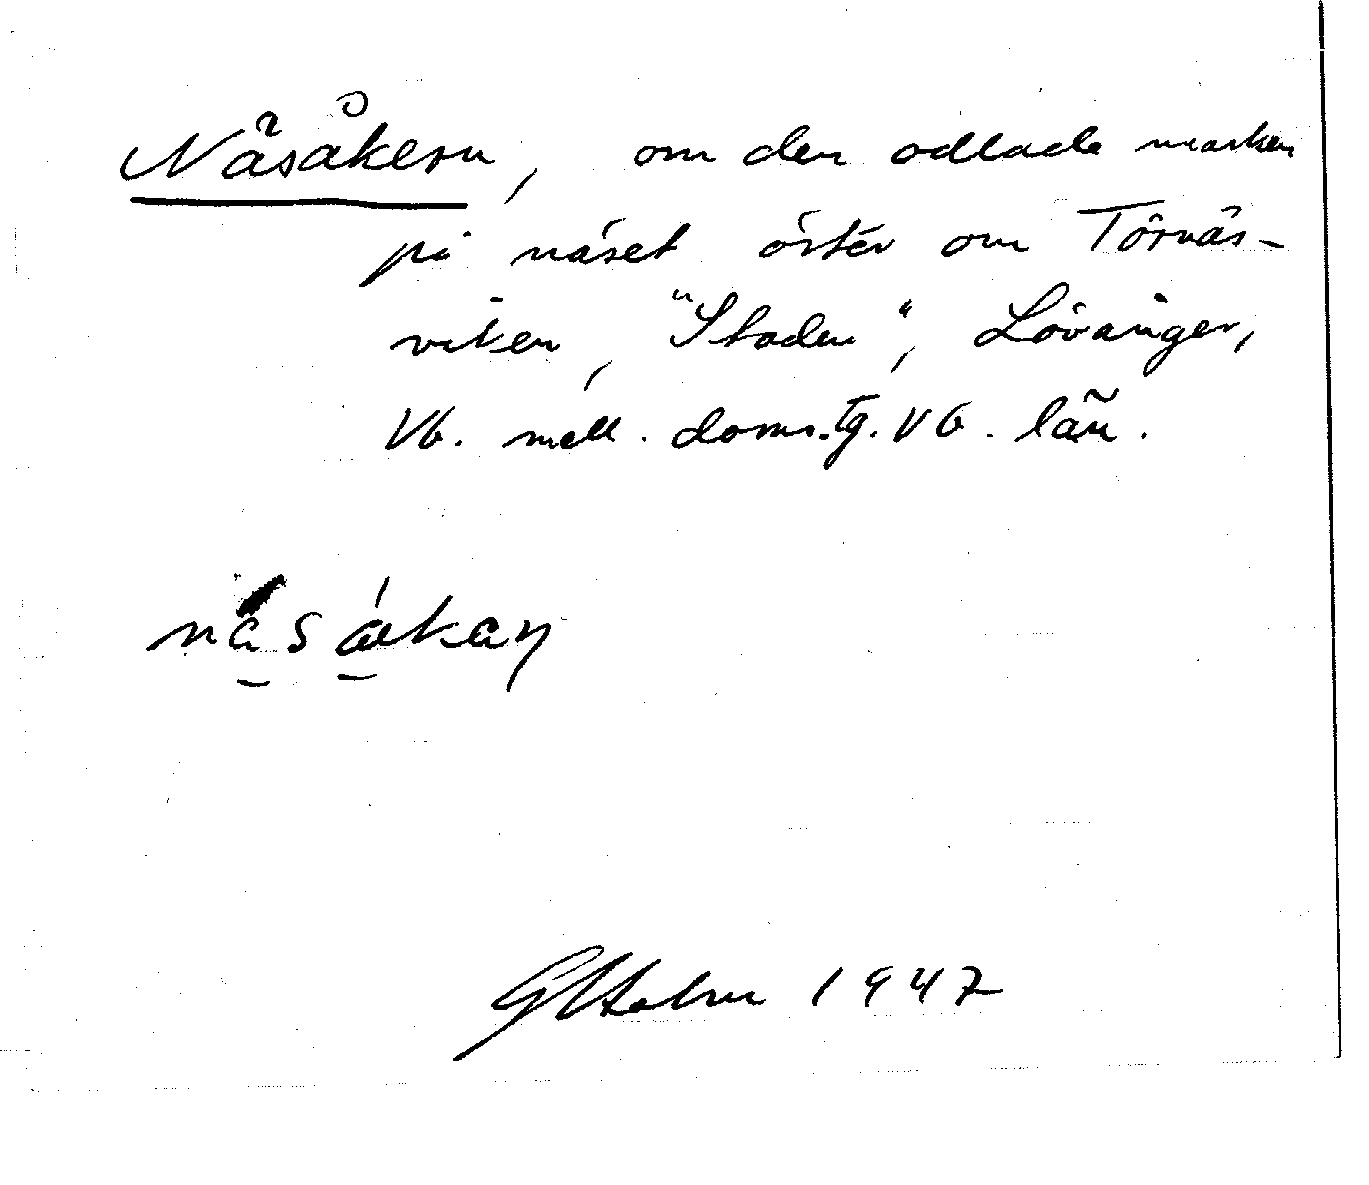 Näsåkern, om den odlade marken
på näset öster om Törnäs-
viken, "Staden", Lövånger,
Vb. mell. doms.tg. Vb. län.
GHolm 1947